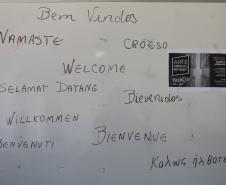 Bem Vindos
NAMASTE
CROESO
WELCOME
ARTE
SELAMAT DATANG
Bievenidos
WILLKOMMEN
BIENVENUE
BENVENUTI
Καλως ήλθατε